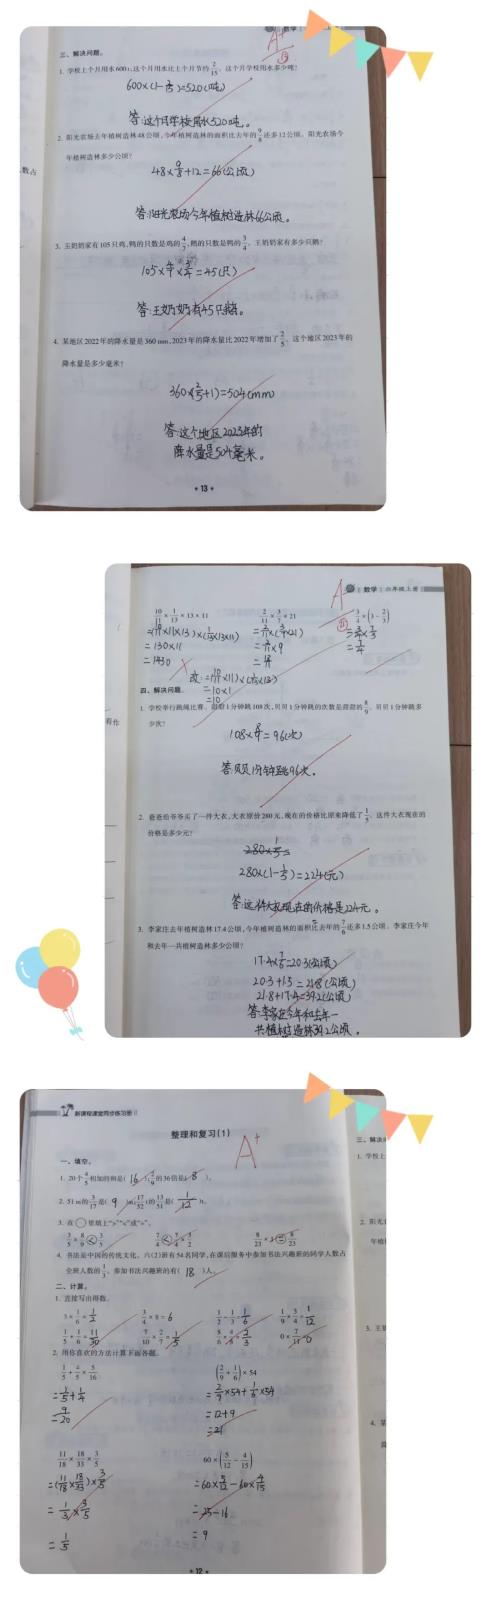 数学
A+
三、解决问题。
1. 学校上个月用水600 t,这个月用水比上个月节约2/15。这个月学校用水多少吨?
600×(1-2/15)=520(吨)
答:这个月学校用水520吨。
2. 阳光农场去年植树造林48公顷,今年植树造林的面积比去年的9/8还多12公顷。阳光农场今
年植树造林多少公顷?
48×9/8+12=66(公顷)
答:阳光农场今年植树造林66公顷。
3. 王奶奶家有105只鸡,鸭的只数是鸡的4/7,鹅的只数是鸭的3/4。王奶奶家有多少只鹅?
105×4/7×3/4=45(只)
答:王奶奶有45只鹅。
4. 某地区2022年的降水量是360 mm,2023年的降水量比2022年增加了2/5。这个地区2023年的
降水量是多少毫米?
360×(2/5+1)=504(mm)
答:这个地区2023年的
降水量是504毫米。
• 13 •
数学 六年级上册
A
10/11×1/13×13×11
2/11×3/7×21
3/4×(3-2/3)
=130×11
=2/11×9
=3/4×7/3
=1430
=18/11
=7/4
=10×1
=10
四、解决问题。
1. 学校举行跳绳比赛。甜甜1分钟跳108次,贝贝1分钟跳的次数是甜甜的8/9。贝贝1分钟跳多
少次?
=96(次)
答:贝贝1分钟跳96次。
2. 爸爸给爷爷买了一件大衣,大衣原价280元,现在的价格比原来降低了1/5。这件大衣现在的
价格是多少元?
280×(1-1/5)=224(元)
答:这件大衣现在的价格是224元。
3. 李家庄去年植树造林17.4公顷,今年植树造林的面积比去年的7/6还多1.5公顷。李家庄今年
和去年一共植树造林多少公顷?
17.4×7/6=20.3(公顷)
20.3+1.5=21.8(公顷)
21.8+17.4=39.2(公顷)
答:李家庄今年和去年一
共植树造林39.2公顷。
新课程课堂同步练习册
整理和复习(1)
A+
一、填空。
1. 20个4/5相加的和是( 16 ),2/9的36倍是( 8 )。
2. 51 m的3/17是( 9 )m,17/52 t的13/51是( 1/12 )t。
3. 在○里填上“>”“<”或“=”。
4. 书法是中国的传统文化。六(2)班有54名同学,在课后服务中参加书法兴趣班的同学人数占
全班人数的1/3。参加书法兴趣班的有( 18 )人。
二、计算。
1. 直接写出得数。
3×1/6=1/2
3/4×8=6
1/2-1/3=1/6
1/9×3/4=1/12
1/5+1/6=11/30
7/10×2/7=1/5
0×7/11=0
2. 用你喜欢的方法计算下面各题。
1/5+4/5×5/16
(2/9+1/6)×54
=1/5+1/4
=2/9×54+1/6×54
=9/20
=12+9
=21
11/18×18/33×3/5
60×(5/12-4/15)
=(11/18×18/33)×3/5
=60×5/12-60×4/15
=1/3×3/5
=25-16
=1/5
=9
• 12 •